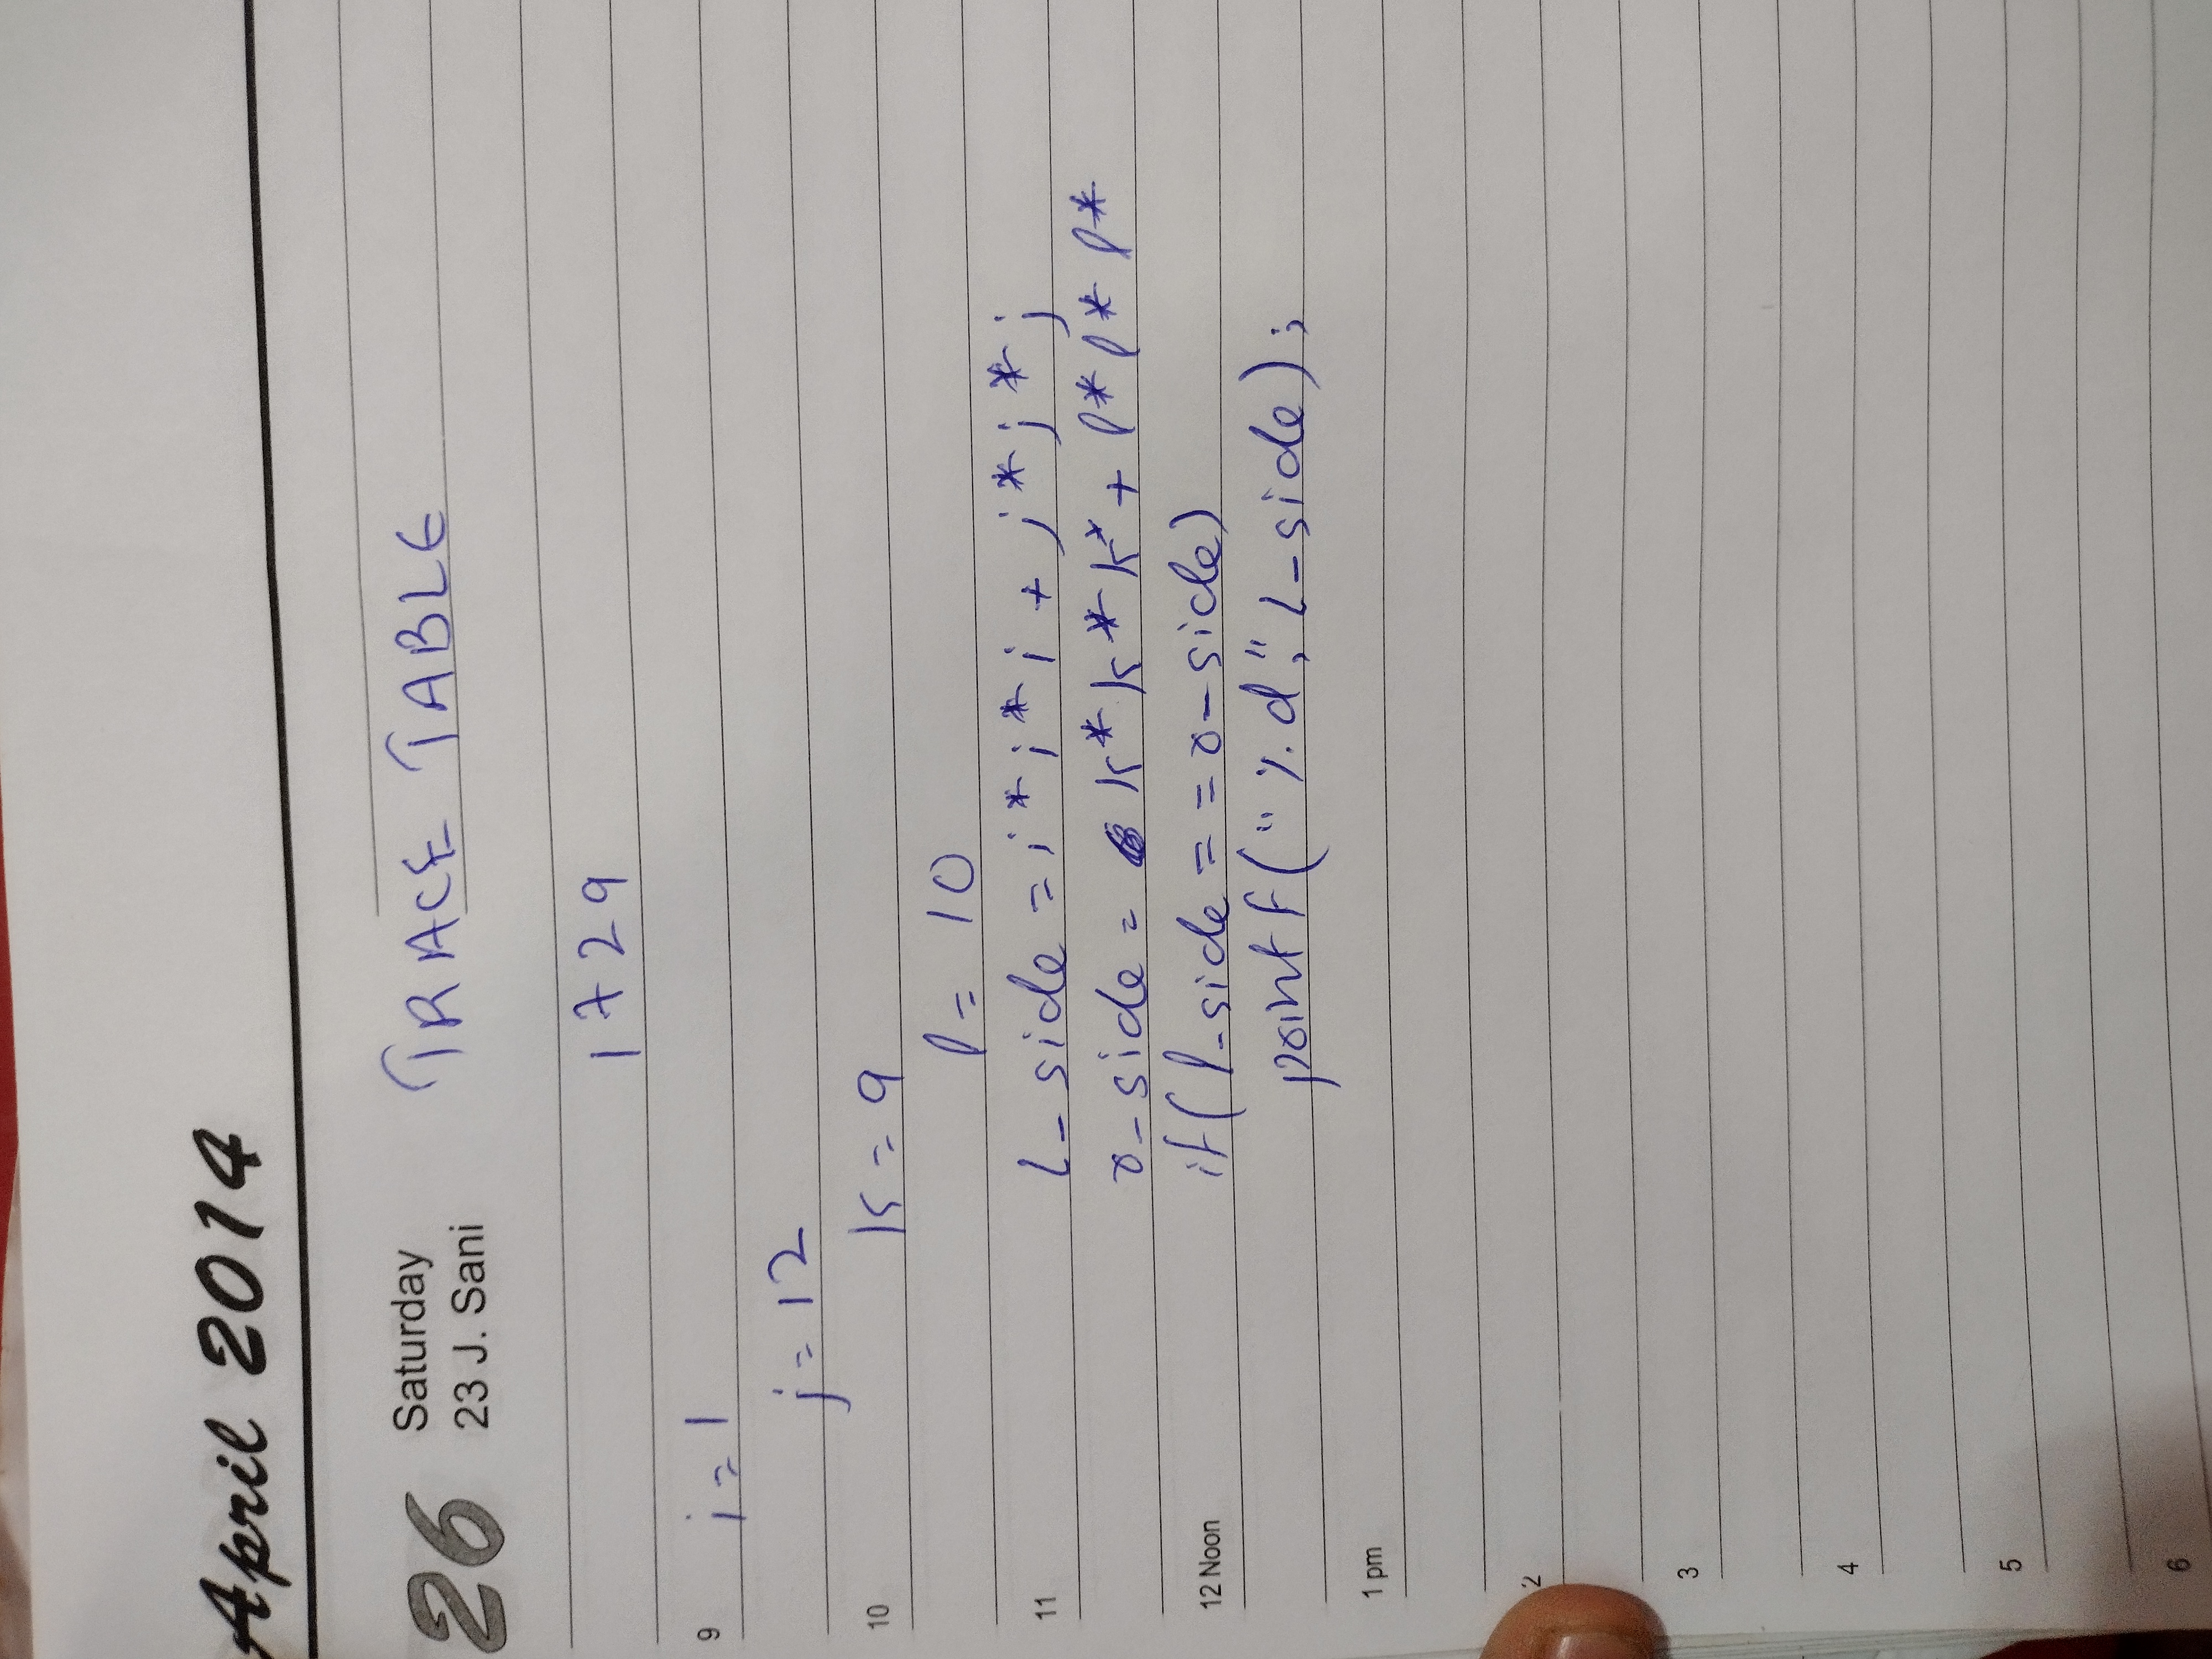 April 2014
26 Saturday
23 J. Sani
TRACE TABLE
1729
9 i = 1
j = 12
10 k = 9
l = 10
11 l_side = i * i * i + j * j * j
r_side = k * k * k + l * l * l *
12 Noon if (l_side == r_side)
printf("%d," l_side);
1 pm
2
3
4
5
6